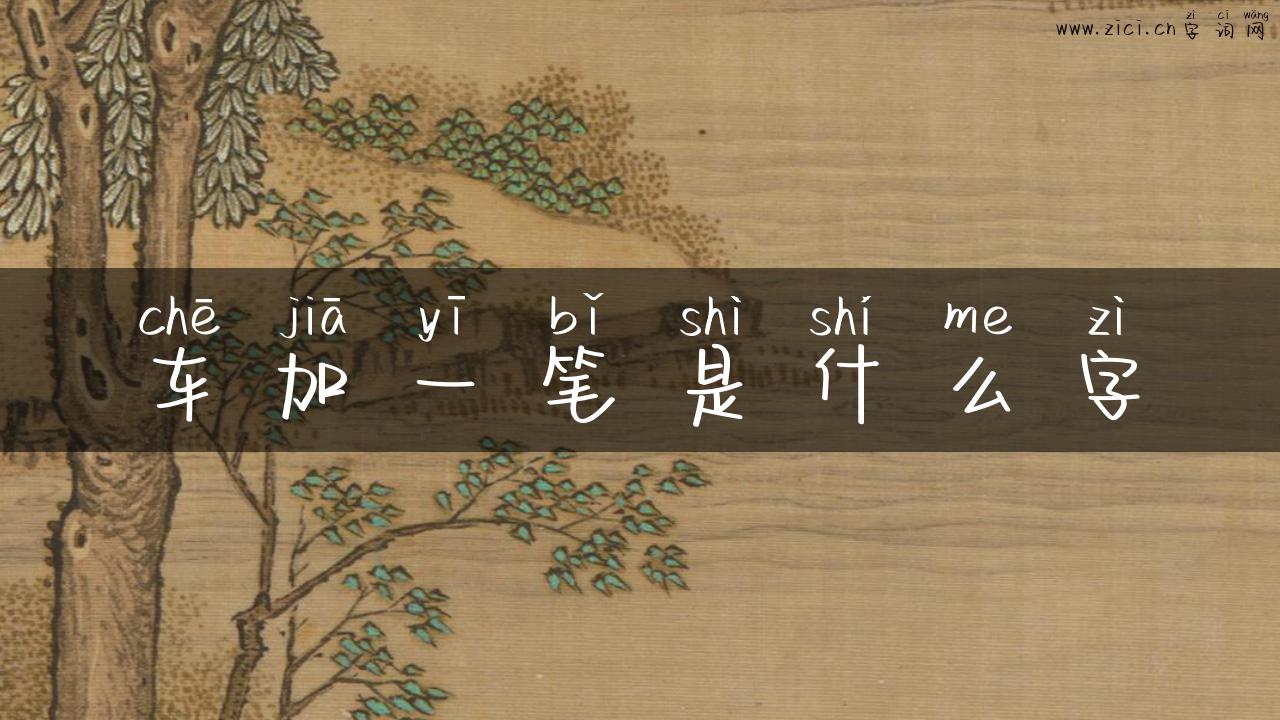 zì cí wǎng
www.zici.cn 字词网
chē jiā yī bǐ shì shí me zì
车加一笔是什么字